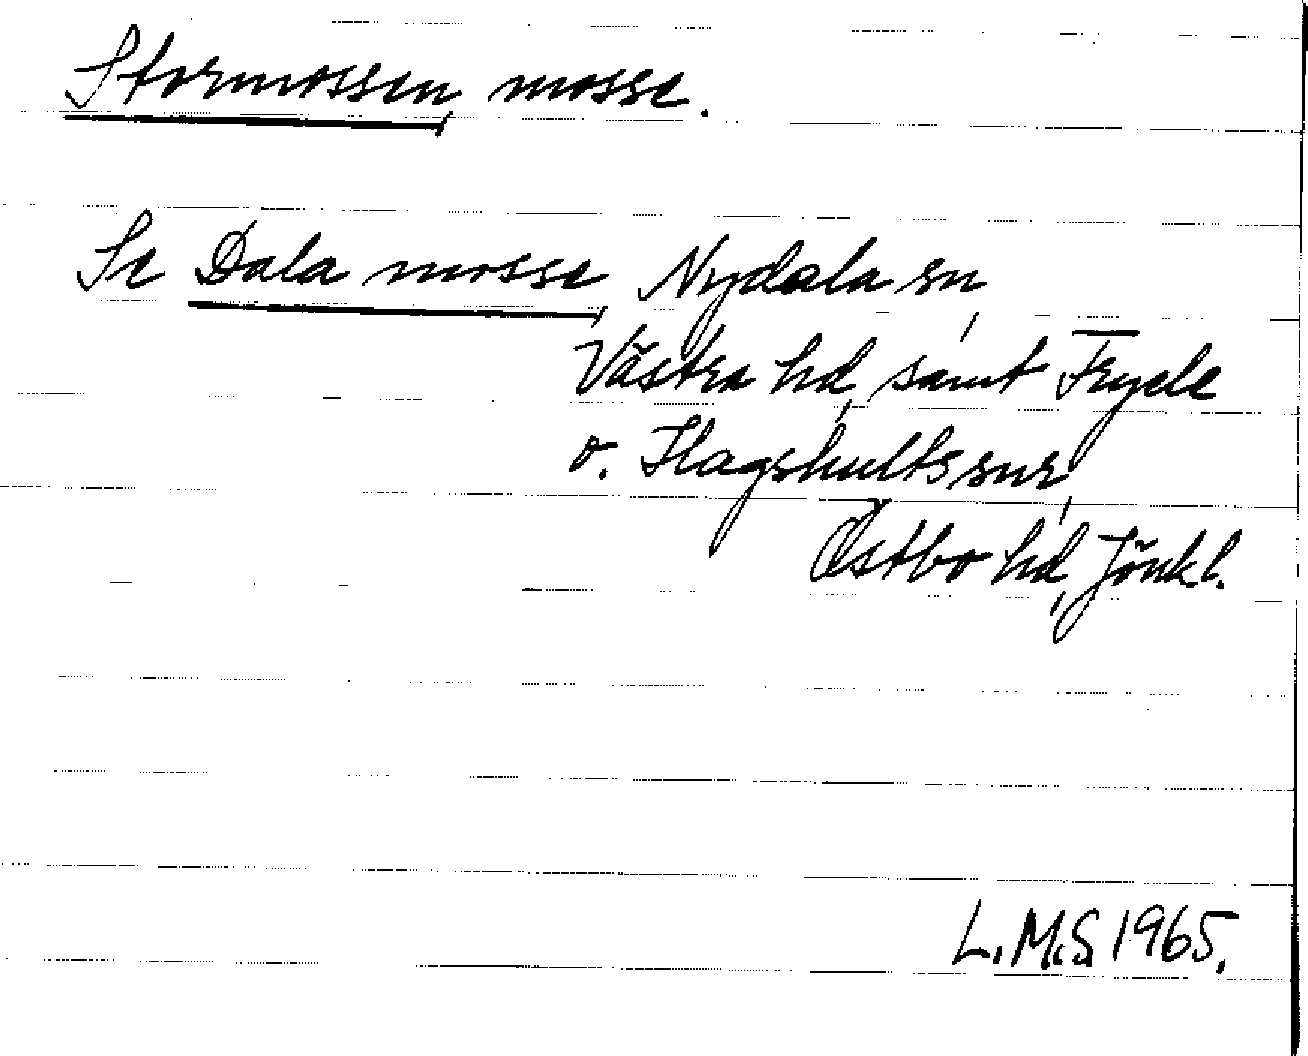 Stormossen mosse.
Se Dala mosse, Nydala sn,
Västra hd, samt Fryele
o. Hagshults snr,
Östbo hd, Jönk l.
L.M.S 1965.